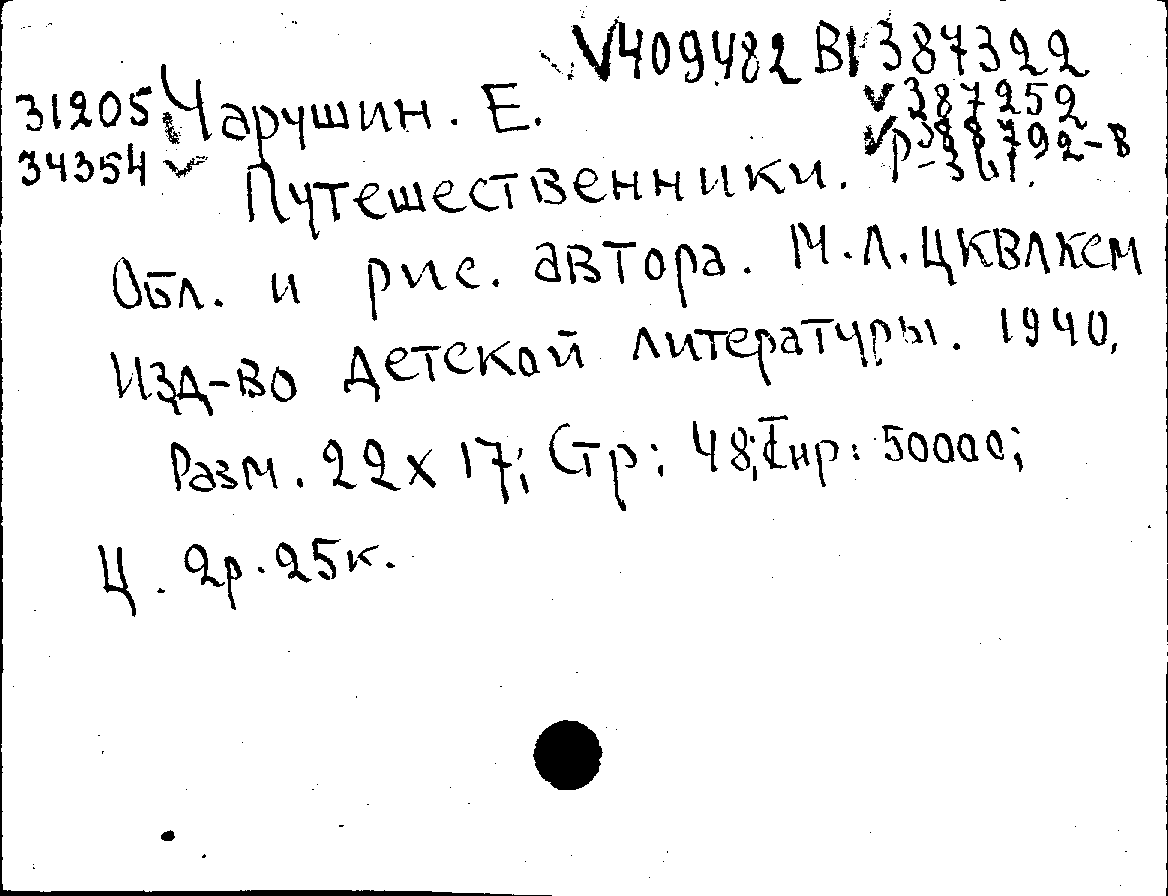 V409482 В 387322
31205 Чарушин. Е. 387259
34354 388792-В
Путешественники. р-361.
Обл. и рис. автора. М.Л.ЦКВЛКСМ
Изд-во детской литературы. 1940,
Разм. 22х17; Стр: 48; Тир: 50000;
Ц. 2р.25к.